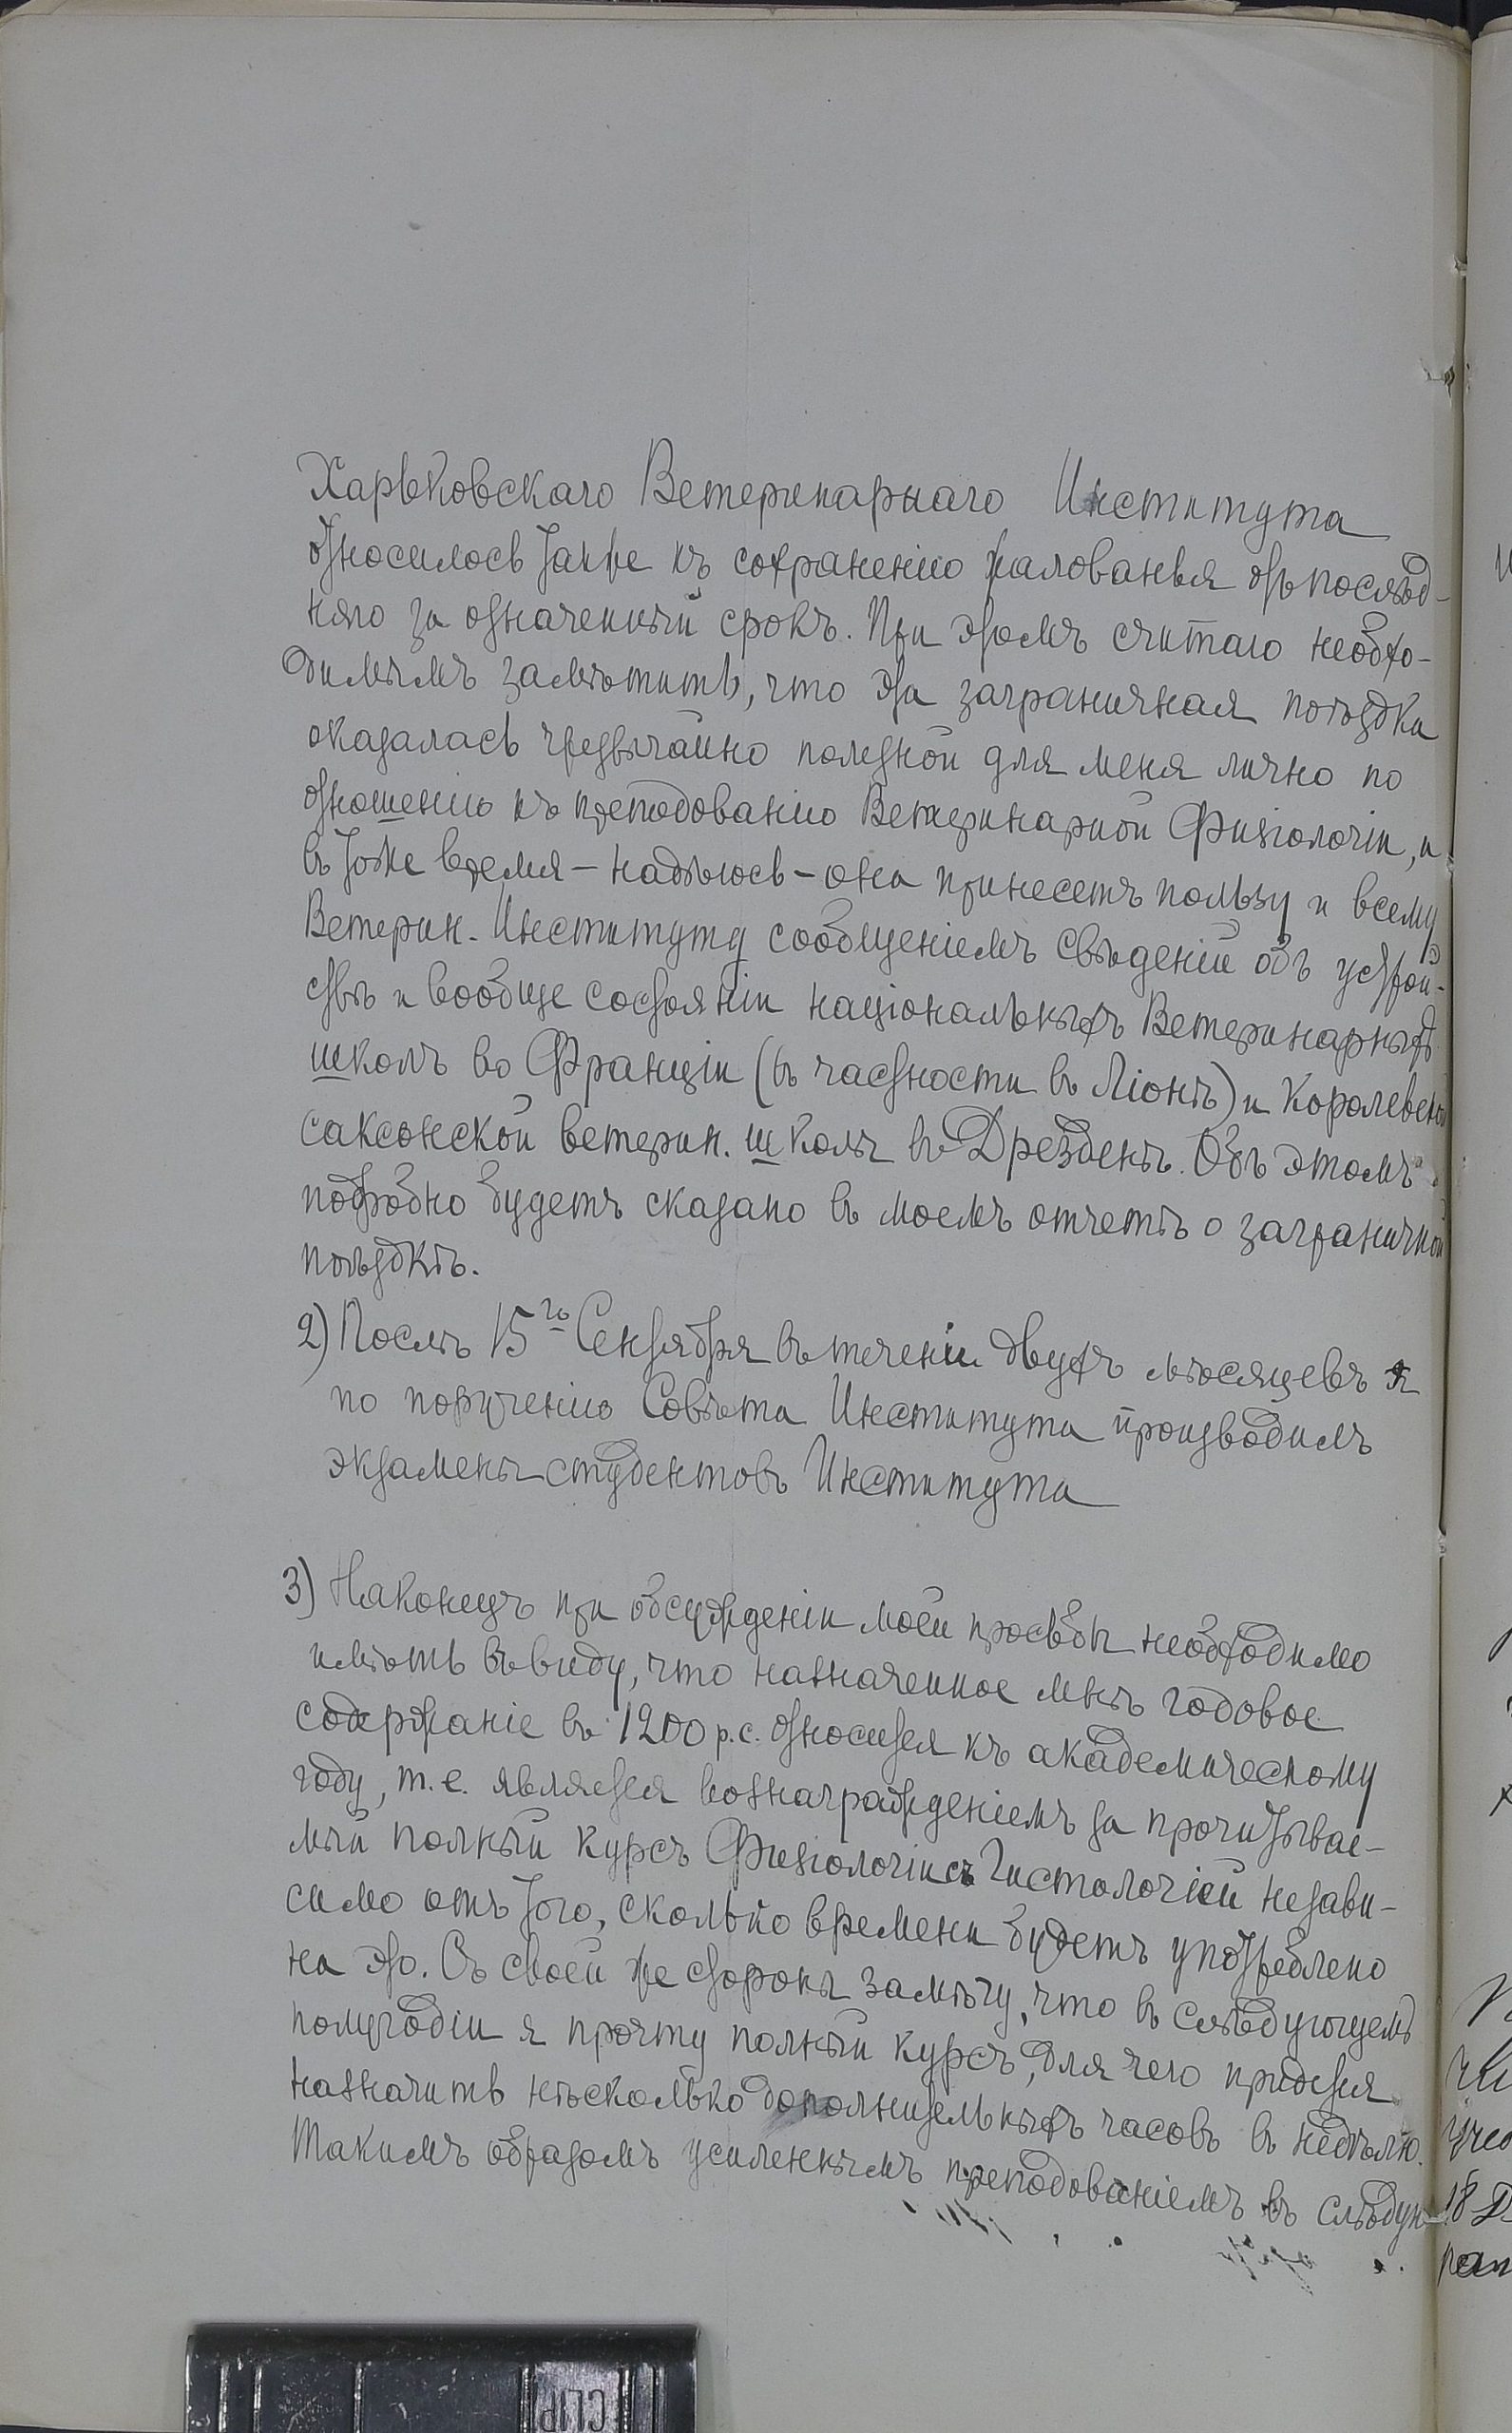 Харьковскаго Ветеринарнаго Института
относилось также къ сохраненію жалованья отъ послѣд-
няго за означенный срокъ. При этомъ считаю необхо-
димымъ замѣтить, что эта заграничная поѣздка
оказалась чрезвычайно полезной для меня лично по
отношенію къ преподованію Ветеринарной Физіологіи, и
въ тоже время – надѣюсь – она принесетъ пользу и всему
Ветерин. Институту сообщеніемъ свѣдѣній объ устрой-
ствѣ и вообще состояніи національныхъ Ветеринарныхъ
школъ во Франціи (въ частности въ Ліонѣ) и Королевской
саксонской ветерин. школы въ Дрезденѣ. Объ этомъ
подробно будетъ сказано въ моемъ отчетѣ о заграничной
поѣздкѣ.
2) Послѣ 15го Сентября въ теченіи двухъ мѣсяцевъ я
по порученію Совѣта Института производилъ
экзамены студентовъ Института
3) Наконецъ при обсужденіи моей просьбы необходимо
имѣть въ виду, что назначенное мнѣ годовое
содержаніе въ 1200 р.с. относится къ академическому
году, т.е. является вознагражденіемъ за прочитывае-
мый полный курсъ Физіологіи съ Гистологіей незави-
симо отъ того, сколько времени будетъ употреблено
на это. Съ своей же стороны замѣчу, что въ слѣдующемъ
полугодіи я прочту полный курсъ, для чего придется
назначить нѣсколько дополнительныхъ часовъ въ недѣлю.
Такимъ образомъ усиленнымъ преподованіемъ въ слѣдую-
18
CLIP